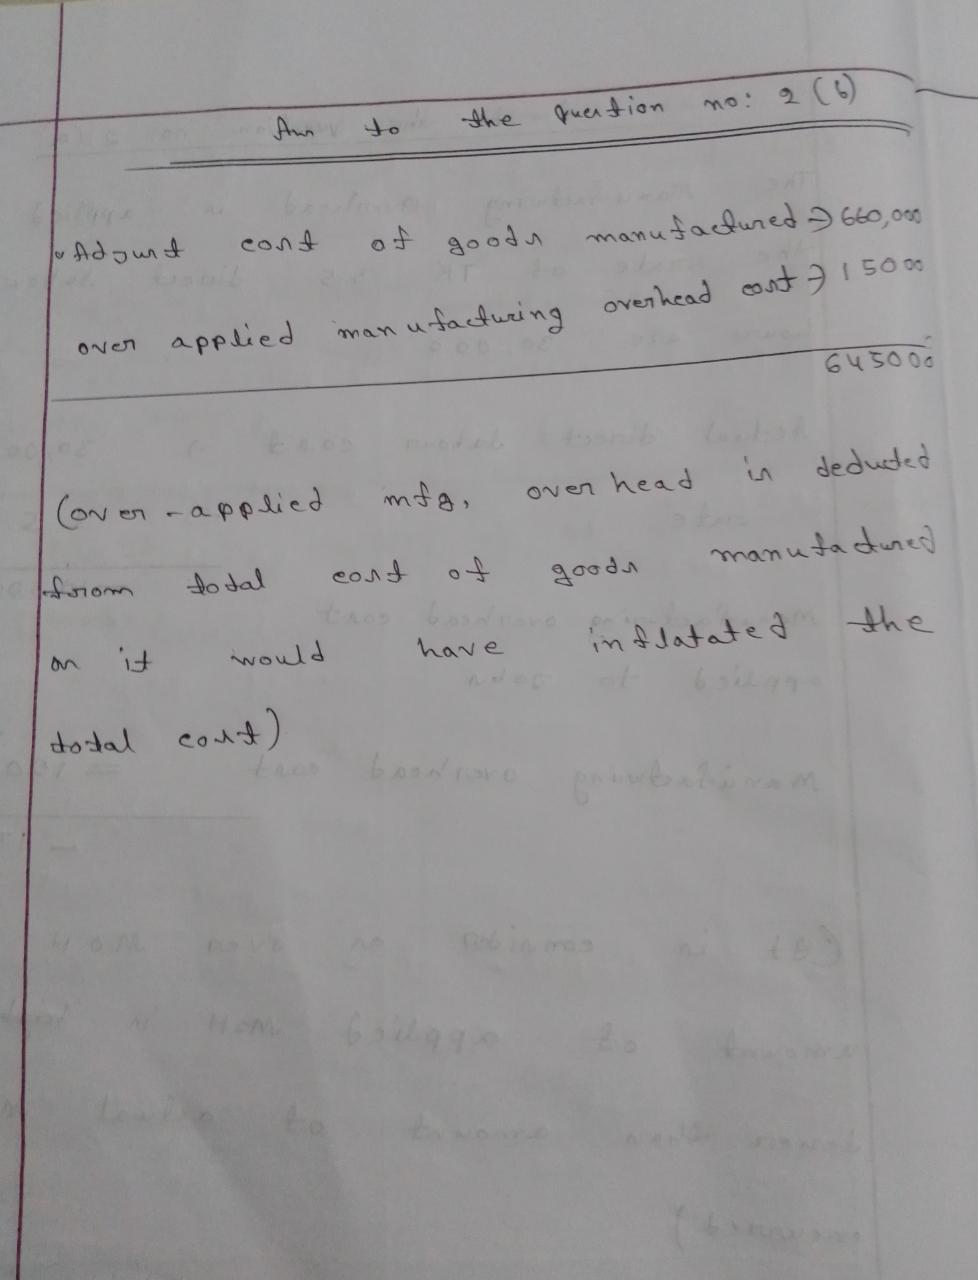 Ans to the Question no: 2 (b)
Adjust cost of goods manufactured ⇒ 660,000
over applied manufacturing overhead cost ⇒ 15000
645000
(over-applied mfg, overhead is deducted
from total cost of goods manufactured
as it would have inflatated the
total cost)